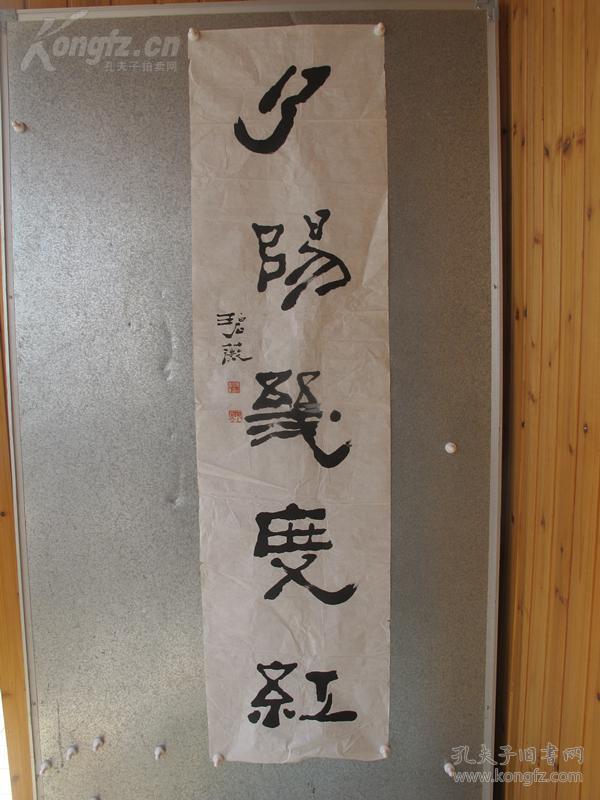 Kongfz.cn
孔夫子拍卖网
夕陽幾度紅
碧薇
孔夫子旧書网
www.kongfz.com